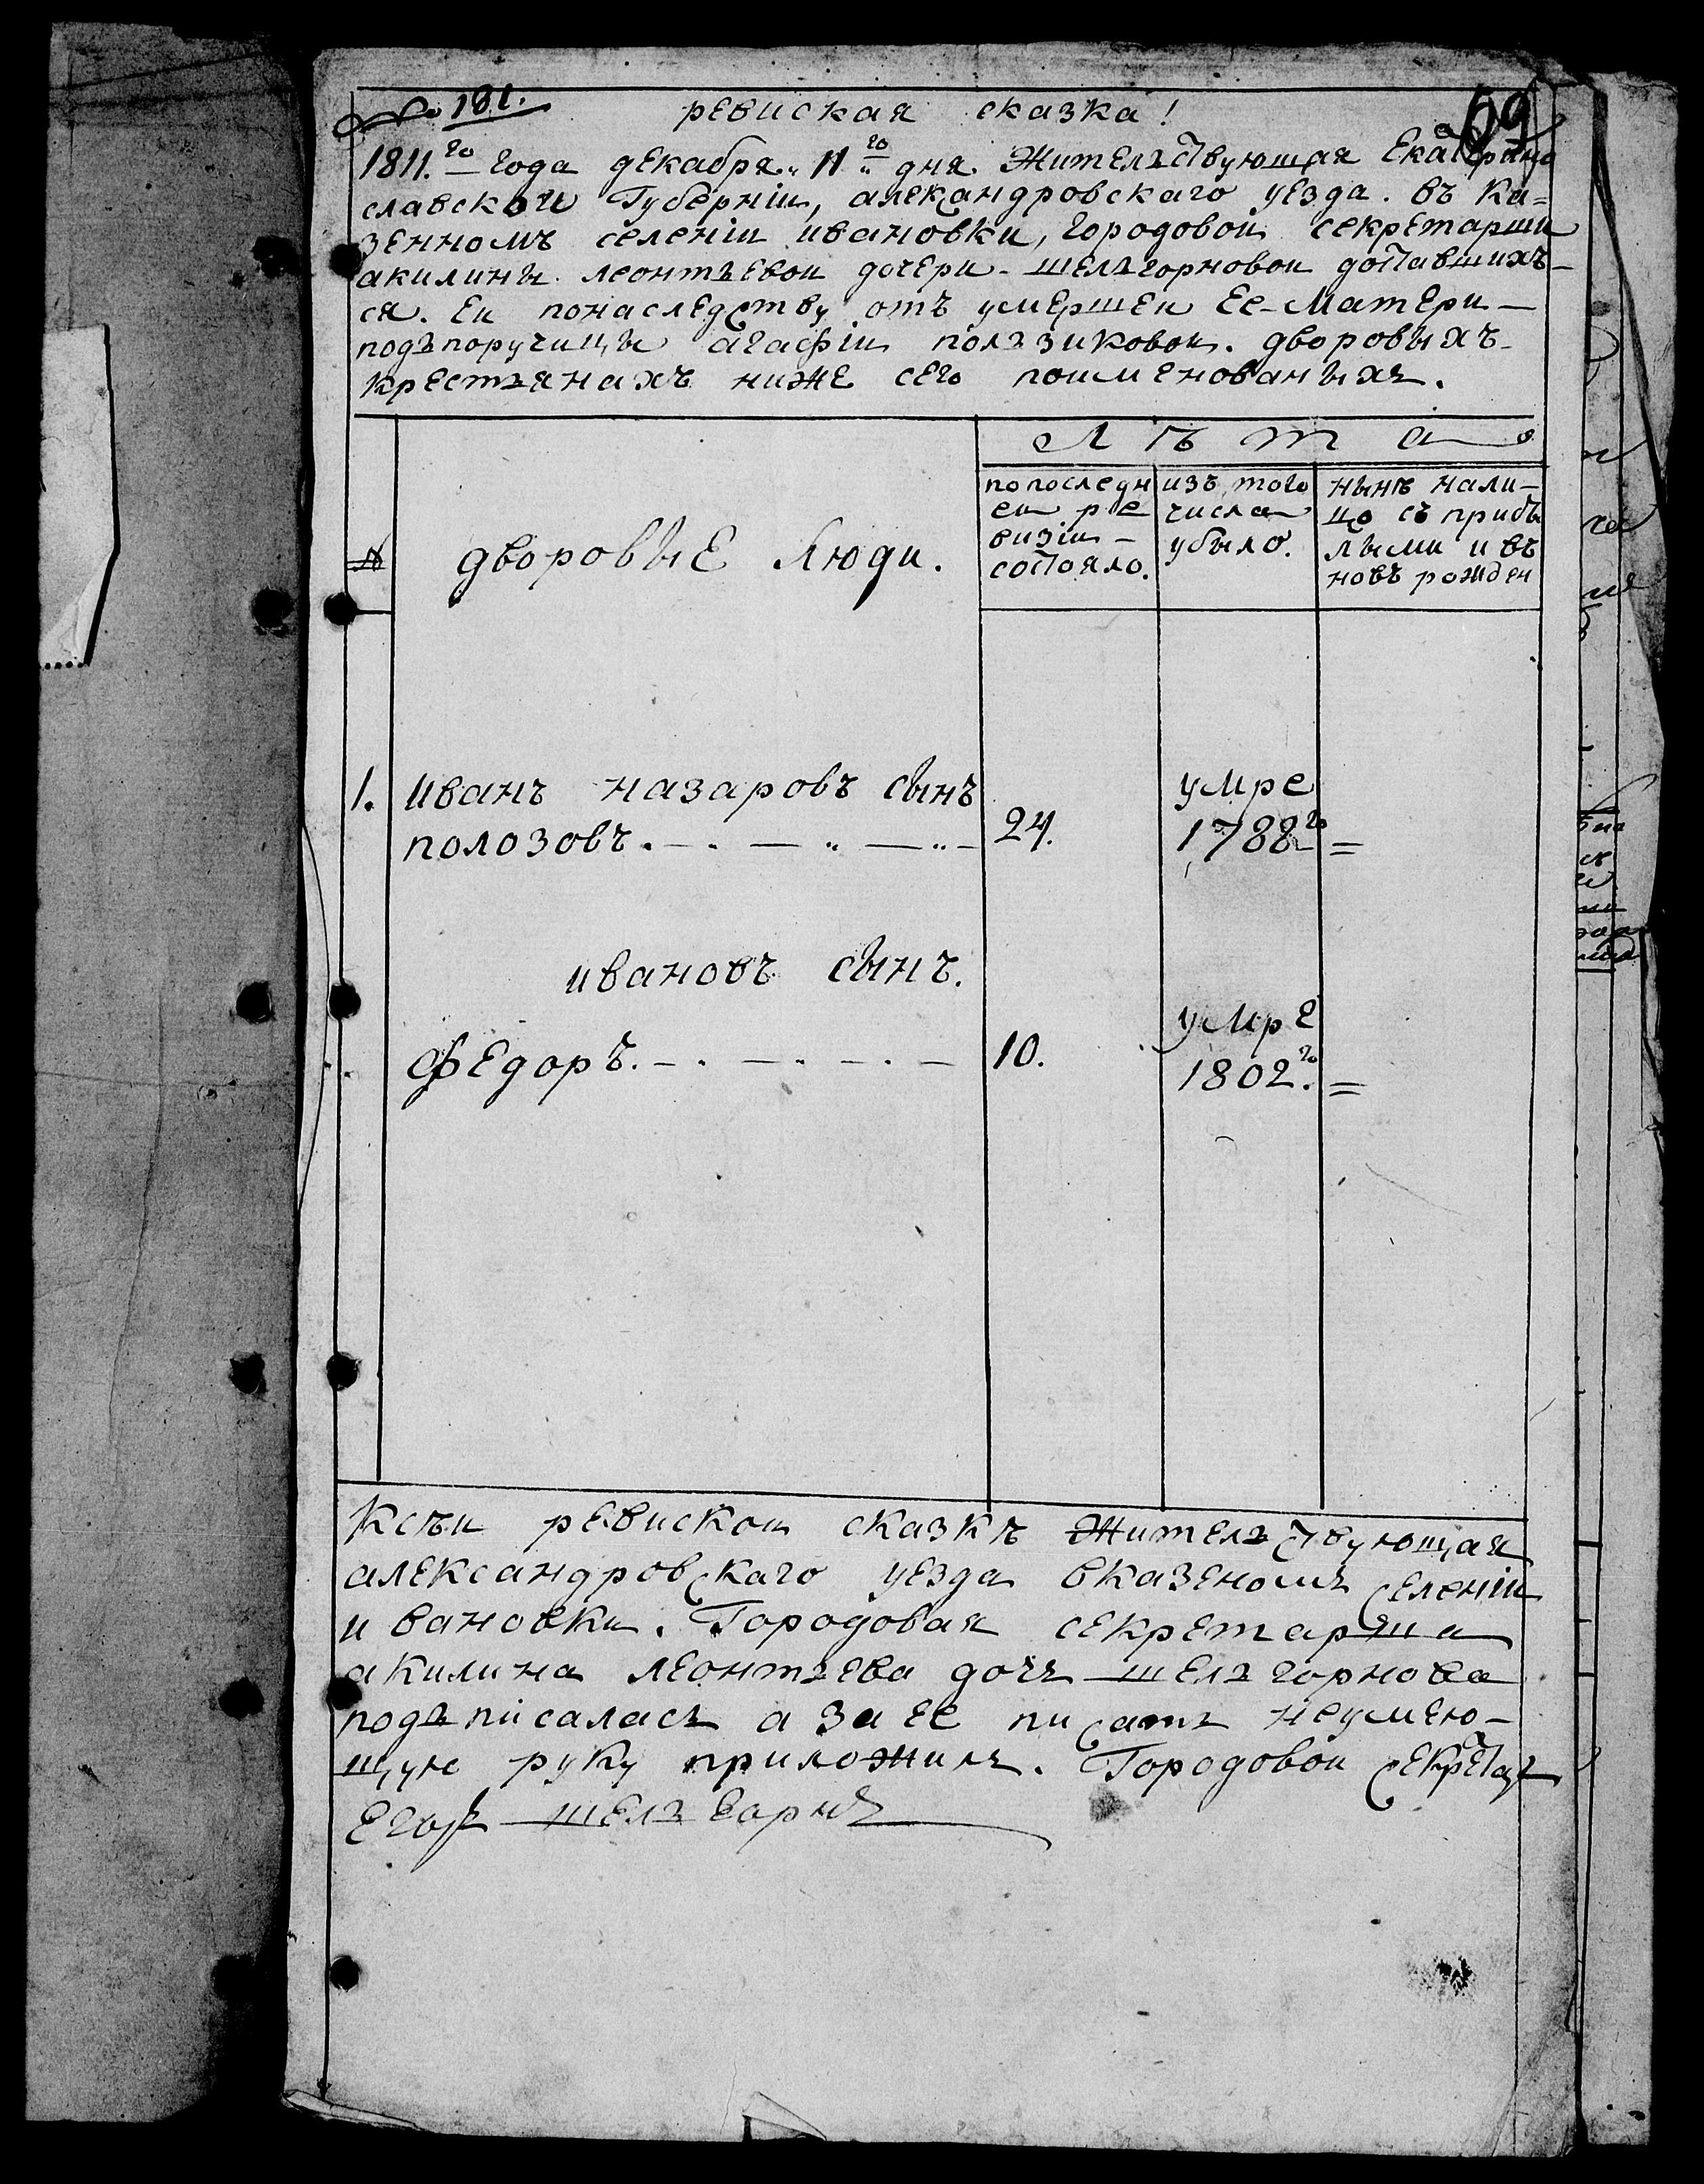 № 181.
69
ревиская сказка!
1811.го года декабря „ 11 „го дня. Жительствующая Екатерино
славской Губерніи, александровскаго уезда. въ ка=
зенномъ селеніи ивановки, городовой секретарши
акилины леонтьевой дочери - шельгорновой доставшихъ-
ся. ей понаследству отъ умершей Ее - Матери —
подъпоручицы агафіи ползиковой. дворовыхъ -
крестьянахъ ниже сего поименованыхъ.
№
дворовые люди.
Лѣта
попоследн
ей ре
визіи -
состояло.
изъ того
числа
убыло.
нынѣ нали-
цо съ прибы
лыми и въ
новъ рожден
1. иванъ назаровъ сынъ
полозовъ . — . — „ — „ —
24.
умре
1788го =
ивановъ сынъ.
федоръ. — . — . — . —
10.
умре
1802.го =
Ксѣй ревиской сказкѣ Жительствующая
александровскаго уезда вказеномъ селеніи
ивановки. Городовая секретарша
акилина леонтьева дочь шельгорнова
подъписалась а за ее писать неумею-
щую руку приложилъ. Городовой секретарь
Егоръ шельгорнъ